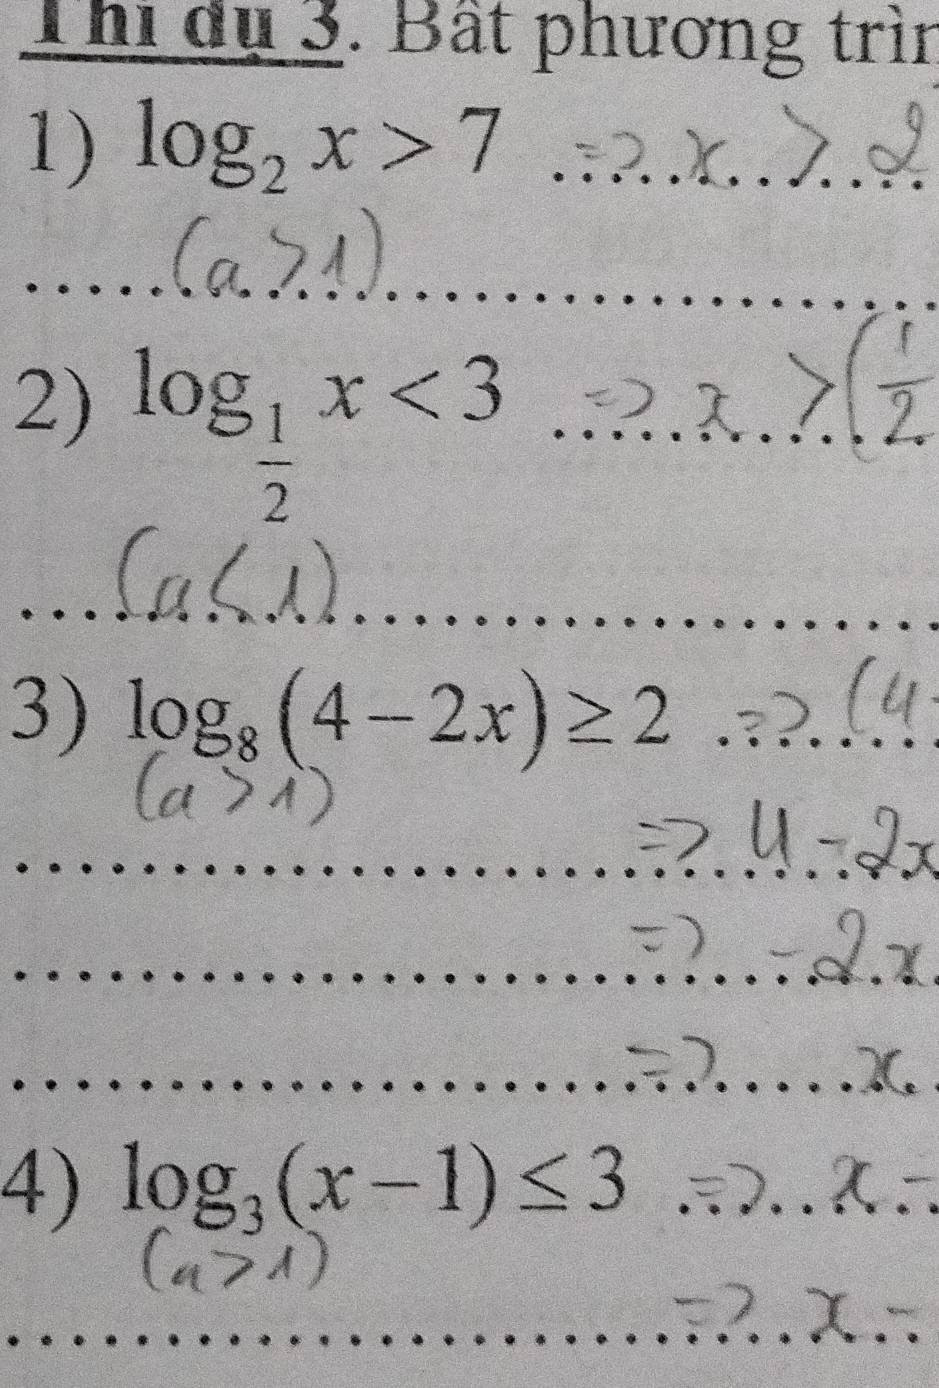 Thí dụ 3. Bất phương trìn
1) log₂ x > 7 ⇒ x > 2
(a > 1)
2) log_{1/2} x < 3 ⇒ x > (1/2
(a < 1)
3) log₈ (4 − 2x) ≥ 2 ⇒ (4 -
(a > 1)
⇒ 4 - 2x
⇒ - 2x
⇒ x
4) log₃ (x − 1) ≤ 3 ⇒ x -
(a > 1)
⇒ x -